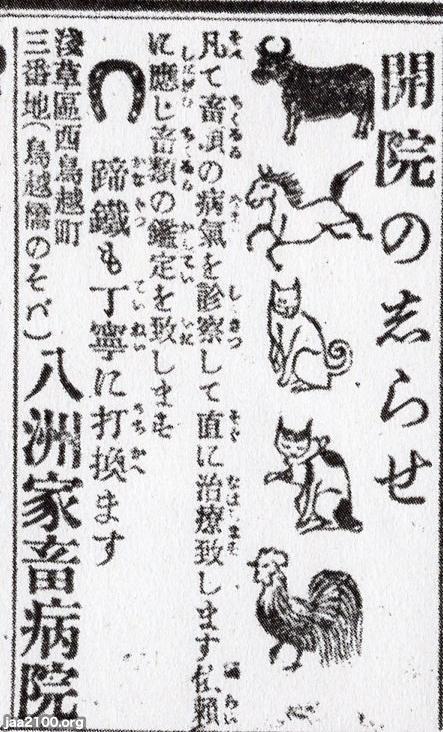 開院の志らせ
凡て畜類の病氣を診察して直に治療致します依頼
に應じ畜類の鑑定を致します
蹄鐵も丁寧に打換ます
淺草區西鳥越町
三番地(鳥越橋のそバ)
八洲家畜病院
jaa2100.org